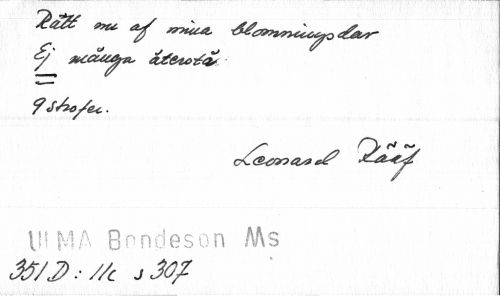 Rätt nu af mina blomningsdar
Ej många återstå.
9 strofer.
Leonard Rääf
ULMA Bondeson Ms
351 D: 11c s 307